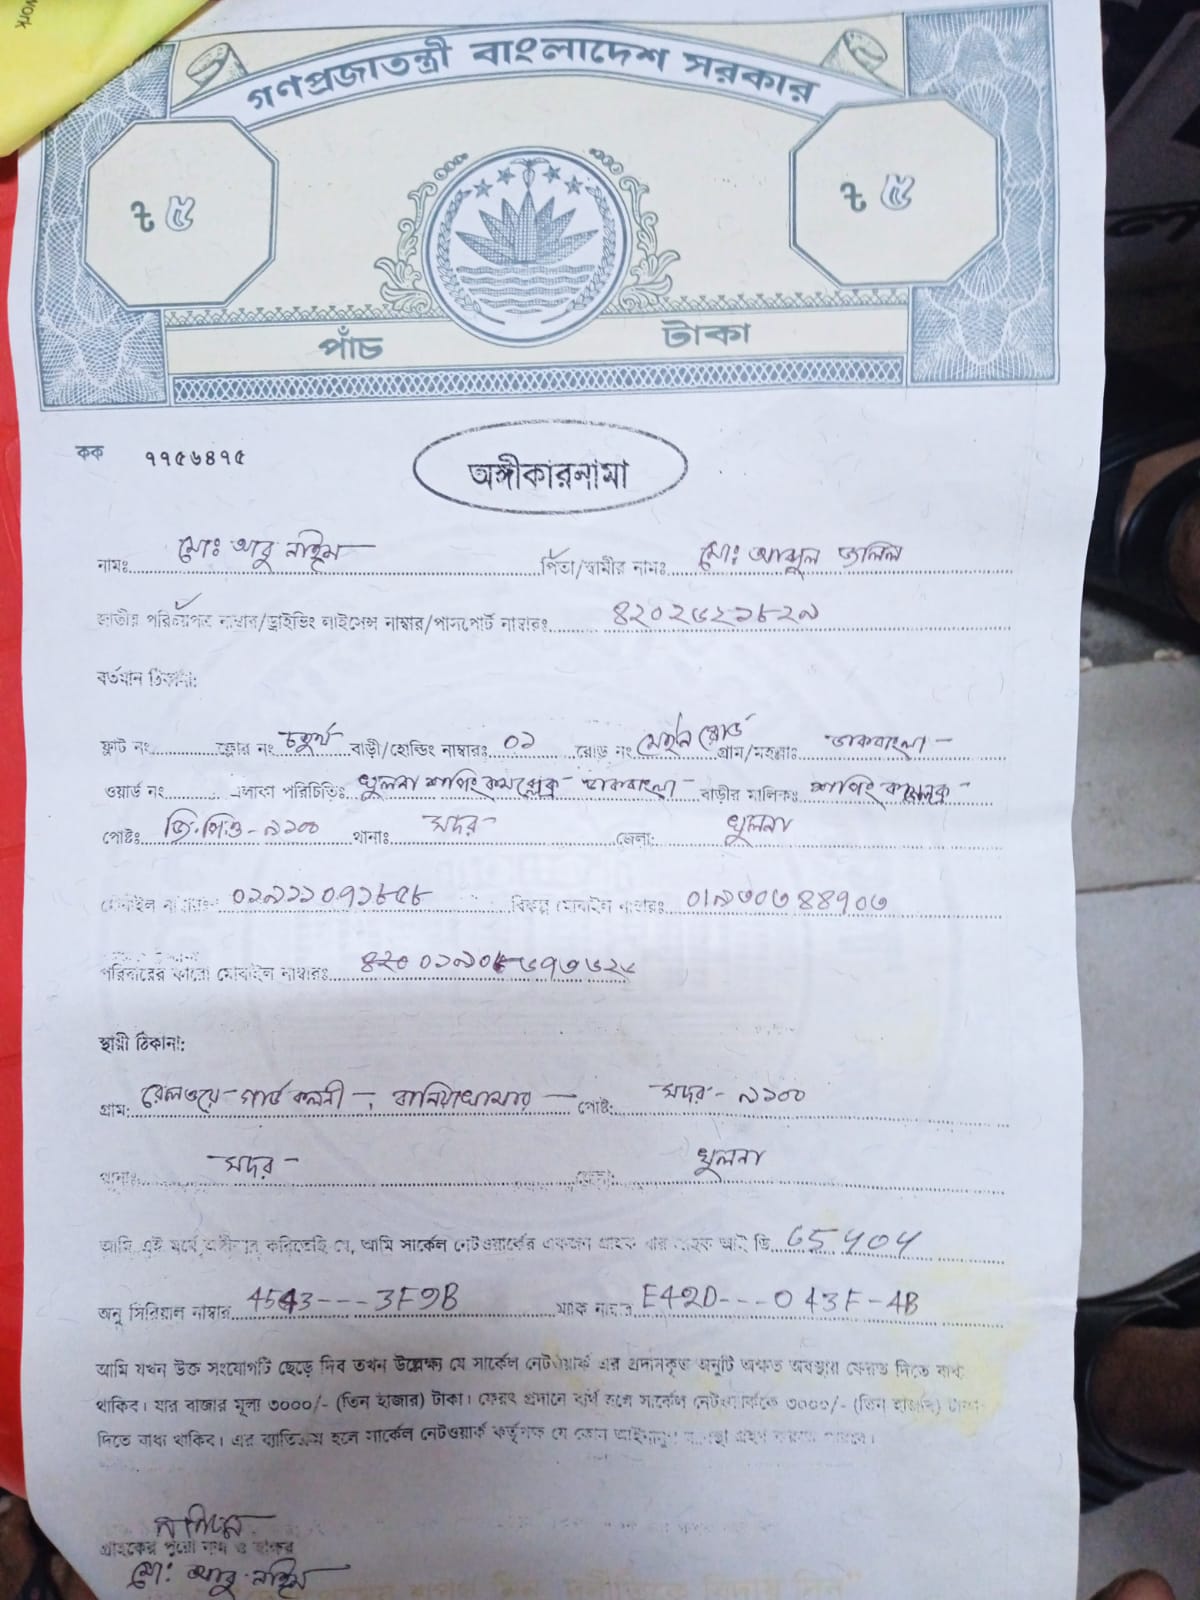 work
গণপ্রজাতন্ত্রী বাংলাদেশ সরকার
৳ ৫ ৳ ৫
পাঁচ টাকা
কক ৭৭৫৬৪৭৫
অঙ্গীকারনামা
নামঃ মোঃ আবু নাইম পিতা/স্বামীর নামঃ মোঃ আব্দুল জলিল
জাতীয় পরিচয়পত্র নাম্বার/ড্রাইভিং লাইসেন্স নাম্বার/পাসপোর্ট নাম্বারঃ
বর্তমান ঠিকানা:
ফ্লাট নং ফ্লোর নং চতুর্থ বাড়ী/হোল্ডিং নাম্বারঃ ০১ রোড নং মেইন রোড গ্রাম/মহল্লাঃ ডাকবাংলা
ওয়ার্ড নং এলাকা পরিচিতিঃ খুলনা শপিং কমপ্লেক্স ডাকবাংলা বাড়ীর মালিকঃ শপিং কমপ্লেক্স
পোষ্টঃ জি.পি.ও - ৯১০০ থানাঃ সদর জেলা: খুলনা
মোবাইল নাম্বারঃ বিকল্প মোবাইল নাম্বারঃ
পরিবারের কারো মোবাইল নাম্বারঃ
স্থায়ী ঠিকানা:
গ্রাম: রেলওয়ে গার্ড কলনী, বানিয়াখামার পোষ্ট: সদর - ৯১০০
থানাঃ সদর জেলা: খুলনা
আমি এই মর্মে অঙ্গীকার করিতেছি যে, আমি সার্কেল নেটওয়ার্কের একজন গ্রাহক যার গ্রাহক আই ডি
অনু সিরিয়াল নাম্বার 4543---3F9B ম্যাক নাম্বার E42D---043F-4B
আমি যখন উক্ত সংযোগটি ছেড়ে দিব তখন উল্লেখ্য যে সার্কেল নেটওয়ার্ক এর প্রদানকৃত অনুটি অক্ষত অবস্থায় ফেরত দিতে বাধ্য
থাকিব। যার বাজার মূল্য ৩০০০/- (তিন হাজার) টাকা। ফেরৎ প্রদানে ব্যর্থ হলে সার্কেল নেটওয়ার্ককে ৩০০০/- (তিন হাজার) টাকা
দিতে বাধ্য থাকিব। এর ব্যতিক্রম হলে সার্কেল নেটওয়ার্ক কর্তৃপক্ষ যে কোন আইনানুগ ব্যবস্থা গ্রহণ করতে পারবে।
গ্রাহকের পুরো নাম ও স্বাক্ষর
মো: আবু নাইম